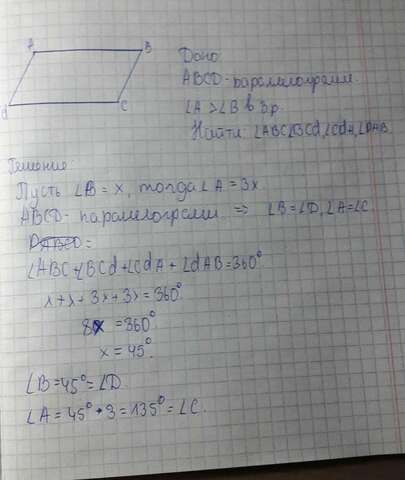 A
B
d
C
Дано:
ABCD-параллелограмм.
∠A >∠B в 3р.
Найти: ∠ABC,∠BCd,∠CdA,∠DAB.
Решение:
Пусть ∠B = x, тогда ∠A = 3x.
ABCD- параллелограмм => ∠B=∠D, ∠A=∠C.
∠ABC+∠BCd+∠CdA + ∠dAB=360°
x+x+3x+3x=360°
8x =360°.
x = 45°.
∠B=45°=∠D.
∠A=45°*3=135°=∠C.